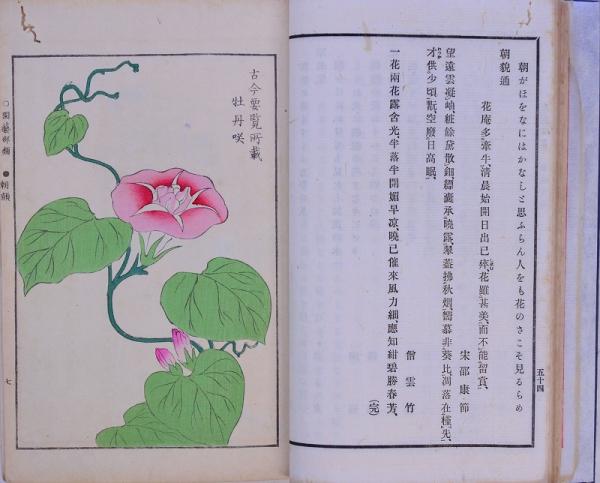 朝がほをなにはかなしと思ふらん人をも花のさこそ見るらめ
朝貌通
花庵多牽牛、清晨始開日出已瘁、花雖甚美、而不能留賞、
宋邵康節
望遠雲凝岫粧餘黛散鈿、縹囊承曉露、翠蓋拂秋烟、嚮慕非葵比、凋落在槿先、
才供少頃翫、空廢日高眠、
僧雲竹
一花兩花露含光、半落半開媚早凉、曉已催來風力細、應知紺碧勝春芳、
(完)
五十四
古今要覧所載
牡丹咲
○園藝部類 ●朝顔
七